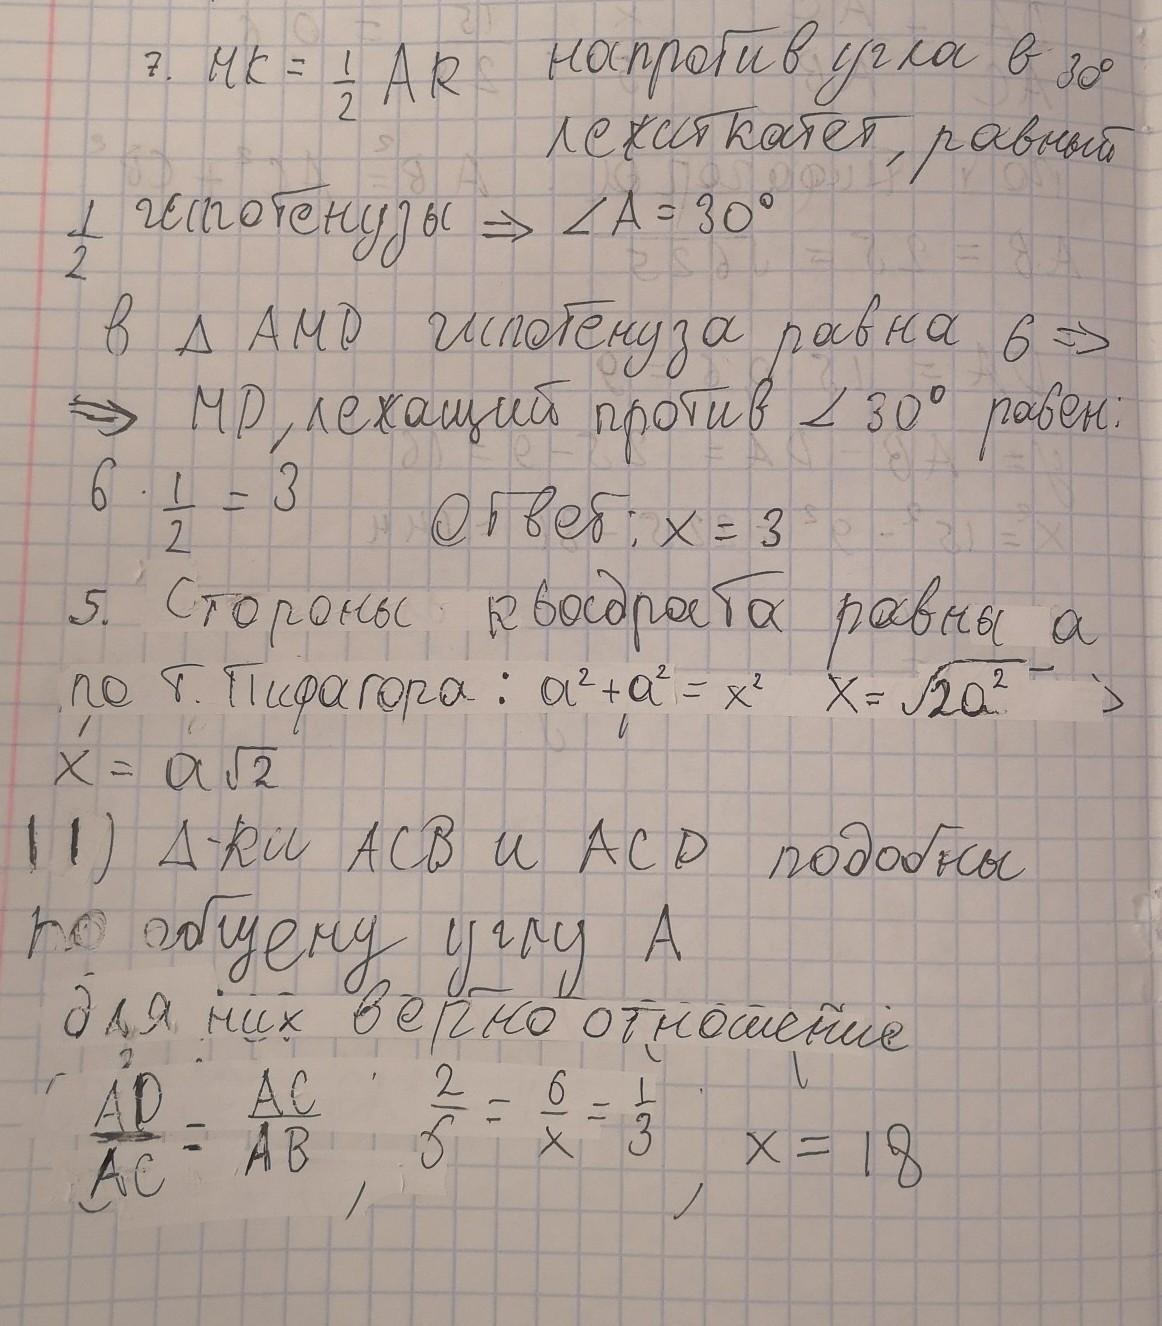 7. МК = 1/2 АК напротив угла в 30°
лежит катет, равный
1/2 гипотенузы ⇒ ∠A = 30°
в Δ АМD гипотенуза равна 6 ⇒
⇒ МD, лежащий против ∠30° равен:
6 · 1/2 = 3 Ответ: x = 3
5. Стороны квадрата равны a
по т. Пифагора: a² + a² = x² x = √2a²
x = a√2
11) Δ-ки АСВ и ACD подобны
по общему углу А
для них верно отношение
AD/AC = AC/AB, 2/6 = 6/x = 1/3, x = 18